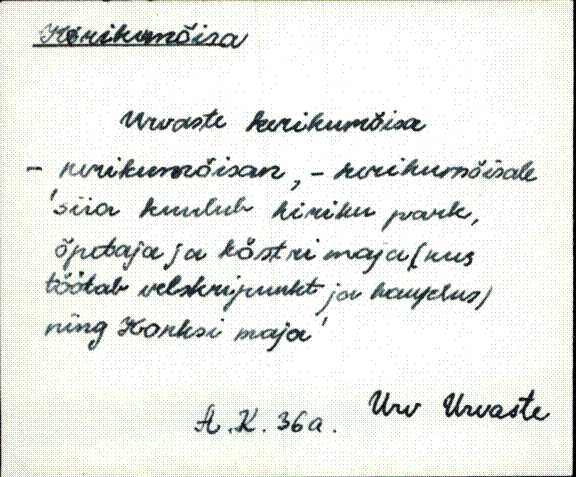 Kerikumõisa
Urvaste kerikumõisa
- kerikumõisan, - kerikumõisale
'siia kuulub kiriku park,
õpetaja ja köstri maja (kus
töötab velskripunkt ja kauplus)
ning Konksi maja'
A.K. 36a. Urv Urvaste